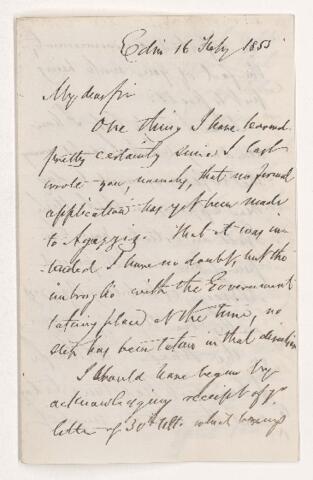 Edin 16 Feby 1855
My dear Sir
One thing I have learned
pretty certainly since I last
wrote you, namely, that no formal
application has yet been made
to Agassiz. That it was in-
tended I have no doubt, but the
imbroglio with the Government
taking place at the time, no
step has been taken in that direction
I should have begun by
acknowledging receipt of yr
letter of 30th Ult. which